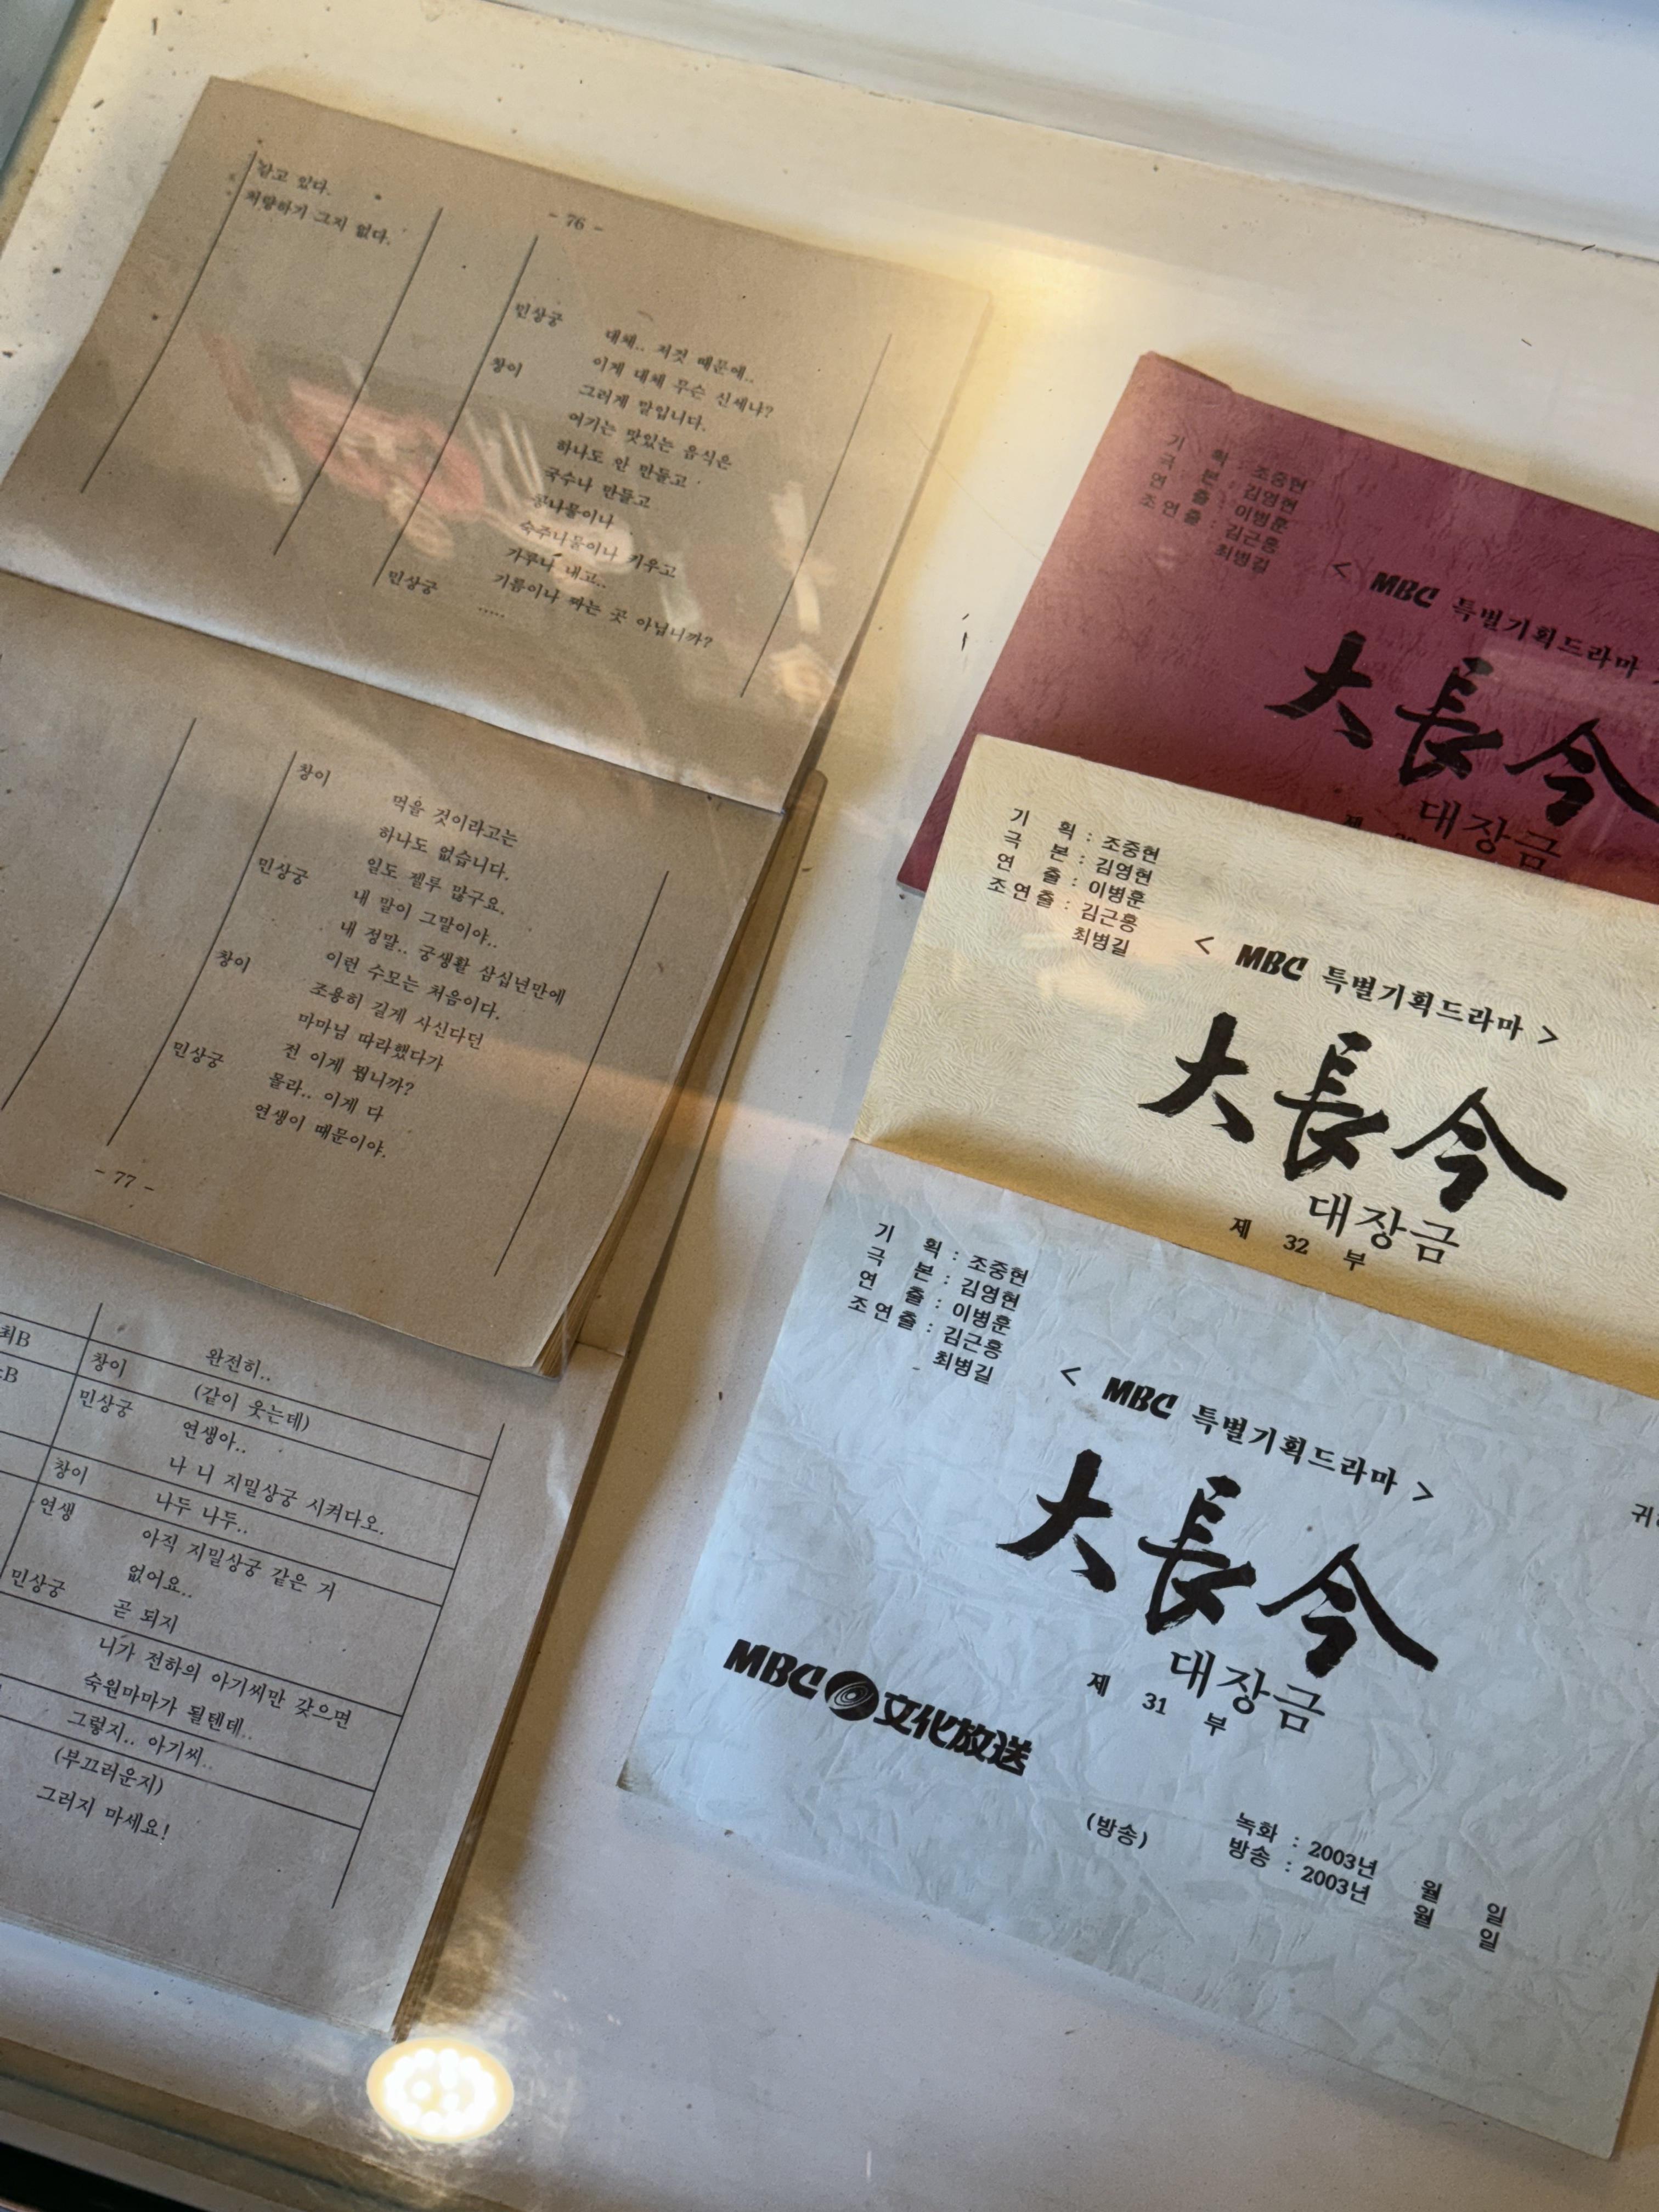 갈고 있다.
처량하기 그지 없다.
- 76 -
민상궁 대체.. 저것 때문에..
이게 대체 무슨 신세냐?
창이 그러게 말입니다.
여기는 맛있는 음식은
하나도 안 만들고
국수나 만들고
콩나물이나
숙주나물이나 키우고
가루나 내고..
기름이나 짜는 곳 아닙니까?
민상궁 .....
창이 먹을 것이라고는
하나도 없습니다.
일도 젤루 많구요.
민상궁 내 말이 그말이야..
내 정말.. 궁생활 삼십년만에
이런 수모는 처음이다.
창이 조용히 길게 사신다던
마마님 따라했다가
전 이게 뭡니까?
민상궁 몰라.. 이게 다
연생이 때문이야.
- 77 -
최B
B
완전히..
창이 (같이 웃는데)
민상궁 연생아..
나 니 지밀상궁 시켜다오.
창이 나두 나두..
연생 아직 지밀상궁 같은 거
없어요..
민상궁 곧 되지
니가 전하의 아기씨만 갖으면
숙원마마가 될텐데..
그렇지.. 아기씨..
(부끄러운지)
그러지 마세요!
기 획 : 조중현
극 본 : 김영현
연 출 : 이병훈
조연출 : 김근홍
최병길
< MBC 특별기획드라마
大長今
대장금
제
기 획 : 조중현
극 본 : 김영현
연 출 : 이병훈
조연출 : 김근홍
최병길
< MBC 특별기획드라마 >
大長今
대장금
제 32 부
기 획 : 조중현
극 본 : 김영현
연 출 : 이병훈
조연출 : 김근홍
최병길
< MBC 특별기획드라마 >
귀하
大長今
대장금
제 31 부
MBC 文化放送
(방송)
녹화 : 2003년 월 일
방송 : 2003년 월 일